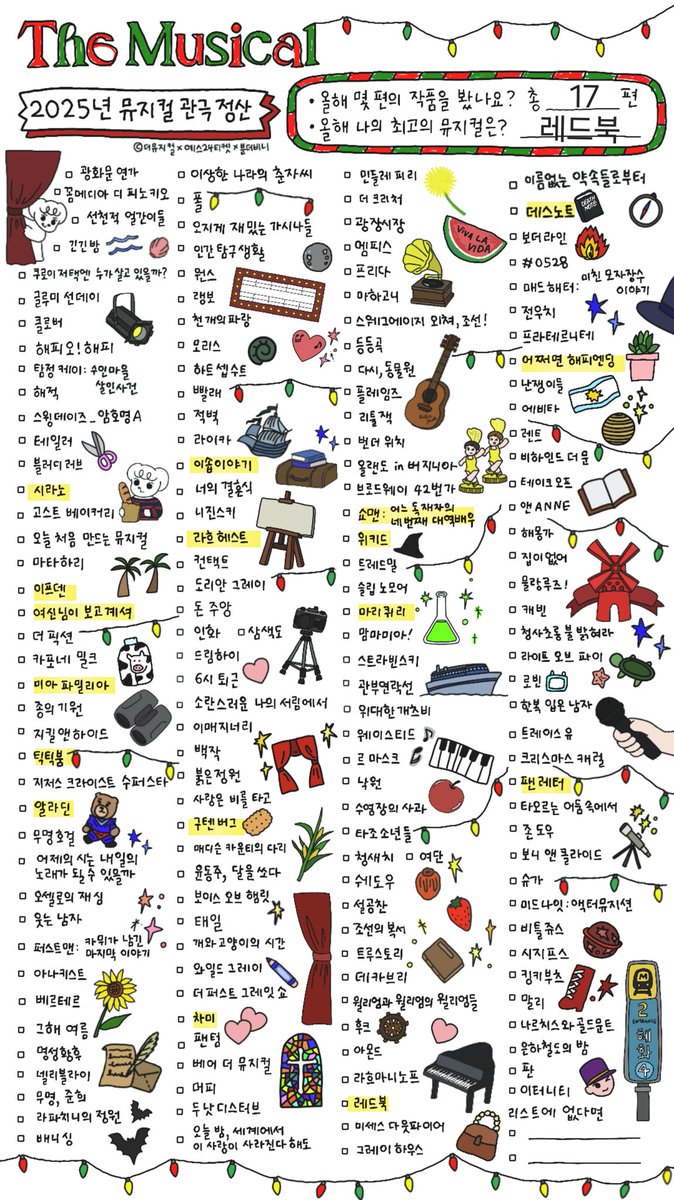 The Musical
2025년 뮤지컬 관극 정산
• 올해 몇 편의 작품을 봤나요? 총 17 편
• 올해 나의 최고의 뮤지컬은? 레드북
©더뮤지컬×예스24티켓×붐더비니
광화문 연가
꼼메디아 디 피노키오
선천적 얼간이들
긴긴밤
쿠로이 저택엔 누가 살고 있을까?
글루미 선데이
클로버
해피 오! 해피
탐정 케이: 수인마을
살인사건
해적
스윙데이즈_암호명 A
테일러
블러디 러브
시라노
고스트 베이커리
오늘 처음 만드는 뮤지컬
마타하리
이프덴
여신님이 보고 계셔
더 픽션
카포네 밀크
미아 파밀리아
종의 기원
지킬 앤 하이드
틱틱붐
지저스 크라이스트 수퍼스타
알라딘
무명호걸
어제의 시는 내일의
노래가 될 수 있을까
오셀로의 재심
웃는 남자
퍼스트맨: 카뮈가 남긴
마지막 이야기
아나키스트
베르테르
그해 여름
명성황후
넬리블라이
무명, 준희
라파치니의 정원
배니싱
이상한 나라의 춘자씨
폴
오지게 재밌는 가시나들
인간 탐구 생활
원스
랭보
천 개의 파랑
모리스
하트셉수트
빨래
적벽
라이카
이솝이야기
너의 결혼식
니진스키
라흐 헤스트
컨택트
도리안 그레이
돈 주앙
인화 삼색도
드림하이
6시 퇴근
소란스러운 나의 서림에서
이매지너리
백작
붉은 정원
사랑은 비를 타고
구텐버그
매디슨 카운티의 다리
윤동주, 달을 쏘다
보이스 오브 햄릿
태일
개와 고양이의 시간
와일드 그레이
더 퍼스트 그레잇 쇼
차미
팬텀
베어 더 뮤지컬
머피
두낫디스터브
오늘 밤, 세계에서
이 사랑이 사라진다 해도
인들레 피리
더 크리처
광장시장
멤피스
VIVA LA
VIDA
프리다
마하고니
스웨그에이지 외쳐, 조선!
등등곡
다시, 동물원
플레임즈
리틀잭
번 더 위치
올랜도 in 버지니아
브로드웨이 42번가
쇼맨: 어느 독재자의
네 번째 대역배우
위키드
트레드밀
슬립 노모어
마리 퀴리
맘마미아!
스트라빈스키
관부연락선
위대한 개츠비
웨이스티드
르 마스크
낙원
수영장의 사과
타조 소년들
청새치 여단
쉐도우
설공찬
조선의 복서
트루스토리
데카브리
윌리엄과 윌리엄의 윌리엄들
후크
아몬드
라흐마니노프
레드북
미세스 다웃파이어
그레이 하우스
이름없는 약속들로부터
데스노트
DEATH
NOTE
보더라인
#0528
매드해터: 미친 모자장수
이야기
전우치
프라테르니테
어쩌면 해피엔딩
난쟁이들
에비타
렌트
비하인드 더 문
테이크 오프
앤 ANNE
해몽가
집이 없어
물랑루즈!
캐빈
청사초롱 불 밝혀라
라이트 오브 파이
로빈
한복 입은 남자
트레이스 유
크리스마스 캐럴
팬레터
타오르는 어둠 속에서
존 도우
보니 앤 클라이드
슈가
미드나잇: 액터뮤지션
비틀쥬스
시지프스
킹키부츠
말리
나르치스와 골드문트
은하철도의 밤
판
이터니티
리스트에 없다면
M
2
ENTRANCE
혜화
4